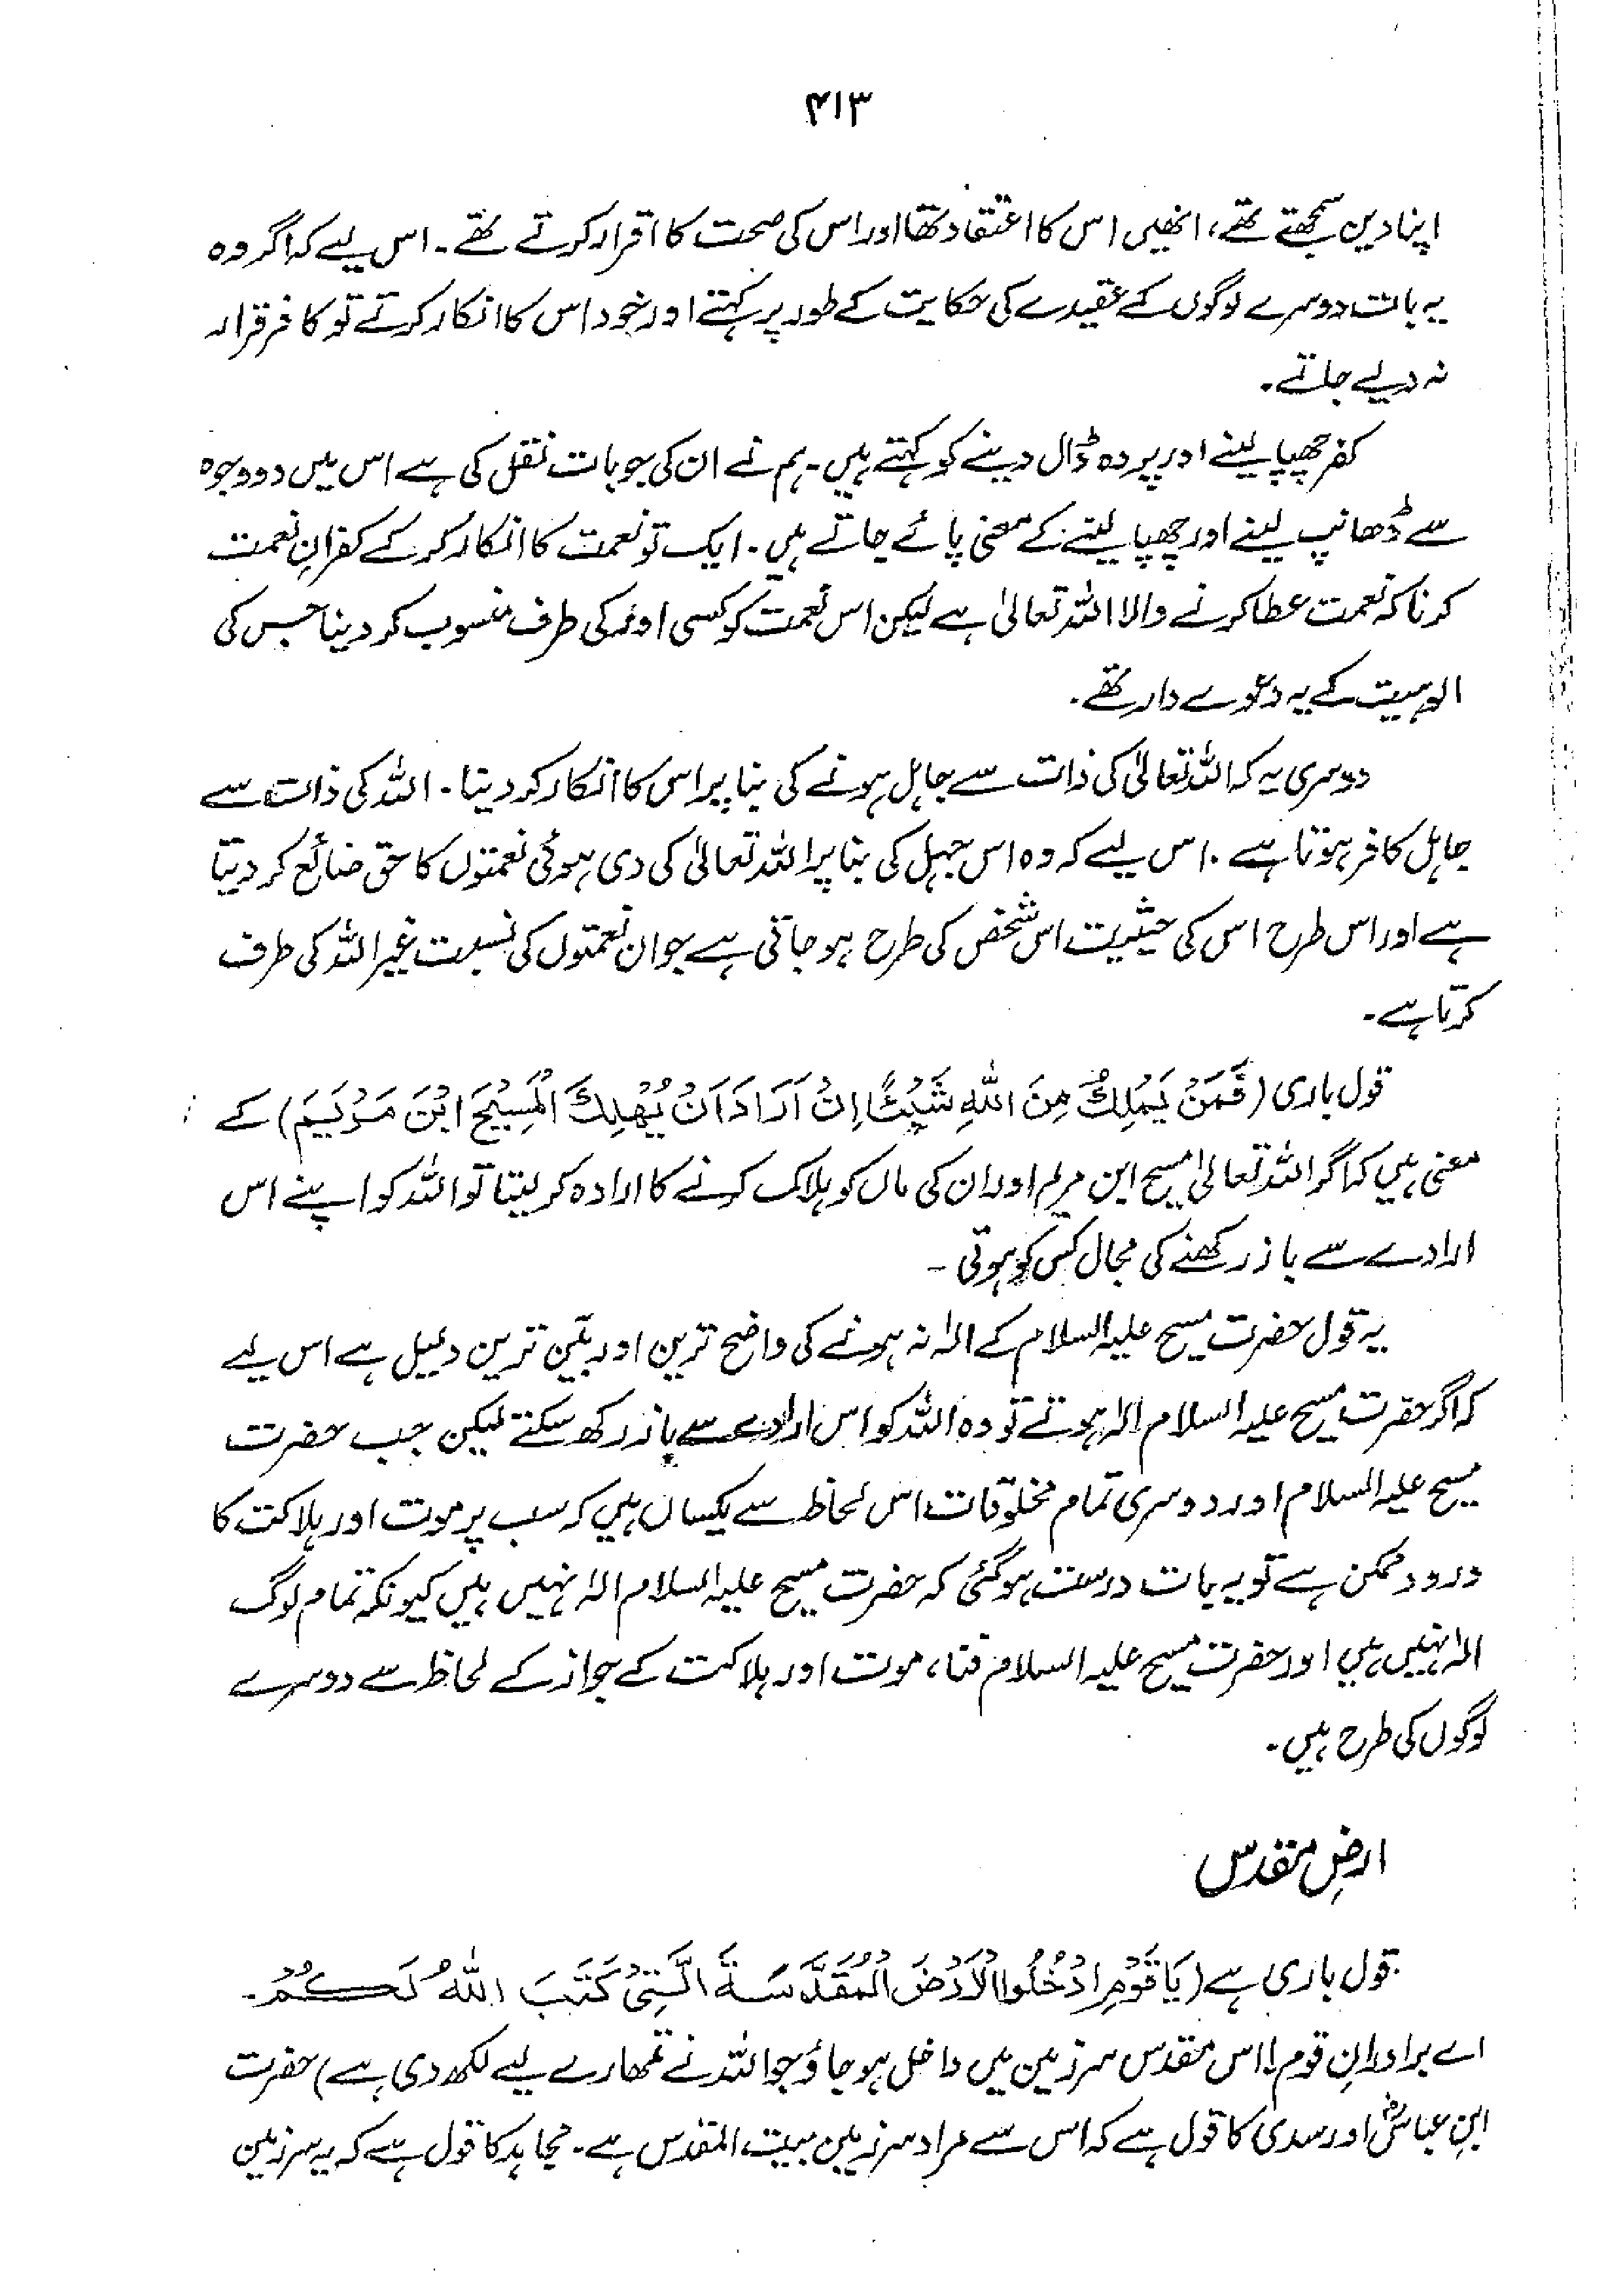 ۴۱۳
اپنا دین سمجھتے تھے، انھیں اس کا اعتقاد تھا اور اس کی صحت کا اقرار کرتے تھے۔ اس لیے کہ اگر وہ
یہ بات دوسرے لوگوں کے عقیدے کی حکایت کے طور پر کہتے اور خود اس کا انکار کرتے تو کافر قرار
نہ دیے جاتے۔
کفر چھپا لینے اور پردہ ڈال دینے کو کہتے ہیں۔ ہم نے ان کی جو بات نقل کی ہے اس میں دو وجوہ
سے ڈھانپ لینے اور چھپا لینے کے معنی پائے جاتے ہیں۔ ایک تو نعمت کا انکار کر کے کفرانِ نعمت
کرنا کہ نعمت عطا کرنے والا اللہ تعالیٰ ہے لیکن اس نعمت کو کسی اور کی طرف منسوب کر دینا جس کی
الوہیت کے یہ دعوے دار تھے۔
دوسری یہ کہ اللہ تعالیٰ کی ذات سے جاہل ہونے کی بنا پر اس کا انکار کر دینا۔ اللہ کی ذات سے
جاہل کافر ہوتا ہے۔ اس لیے کہ وہ اس جہل کی بنا پر اللہ تعالیٰ کی دی ہوئی نعمتوں کا حق ضائع کر دیتا
ہے اور اس طرح اس کی حیثیت اس شخص کی طرح ہو جاتی ہے جو ان نعمتوں کی نسبت غیر اللہ کی طرف
کرتا ہے۔
قول باری (فَمَنْ يَمْلِكُ مِنَ اللهِ شَيْئًا اِنْ اَرَادَ اَنْ يُهْلِكَ الْمَسِيْحَ ابْنَ مَرْيَمَ) کے
معنی ہیں کہ اگر اللہ تعالیٰ مسیح ابن مریم اور ان کی ماں کو ہلاک کرنے کا ارادہ کر لیتا تو اللہ کو اپنے اس
ارادے سے باز رکھنے کی مجال کس کو ہوتی۔
یہ قول حضرت مسیح علیہ السلام کے الٰہ نہ ہونے کی واضح ترین اور بیّن ترین دلیل ہے اس لیے
کہ اگر حضرت مسیح علیہ السلام الٰہ ہوتے تو وہ اللہ کو اس ارادے سے باز رکھ سکتے لیکن جب حضرت
مسیح علیہ السلام اور دوسری تمام مخلوقات اس لحاظ سے یکساں ہیں کہ سب پر موت اور ہلاکت کا
ورود ممکن ہے تو یہ بات درست ہو گئی کہ حضرت مسیح علیہ السلام الٰہ نہیں ہیں کیونکہ تمام لوگ
الٰہ نہیں ہیں اور حضرت مسیح علیہ السلام فنا، موت اور ہلاکت کے جواز کے لحاظ سے دوسرے
لوگوں کی طرح ہیں۔
ارضِ مقدس
قول باری ہے (يَا قَوْمِ ادْخُلُوا الْاَرْضَ الْمُقَدَّسَةَ الَّتِيْ كَتَبَ اللهُ لَكُمْ۔
اے برادرانِ قوم! اس مقدس سرزمین میں داخل ہو جاؤ جو اللہ نے تمھارے لیے لکھ دی ہے) حضرت
ابنِ عباسؓ اور سدی کا قول ہے کہ اس سے مراد سرزمین بیت المقدس ہے۔ مجاہد کا قول ہے کہ یہ سرزمین